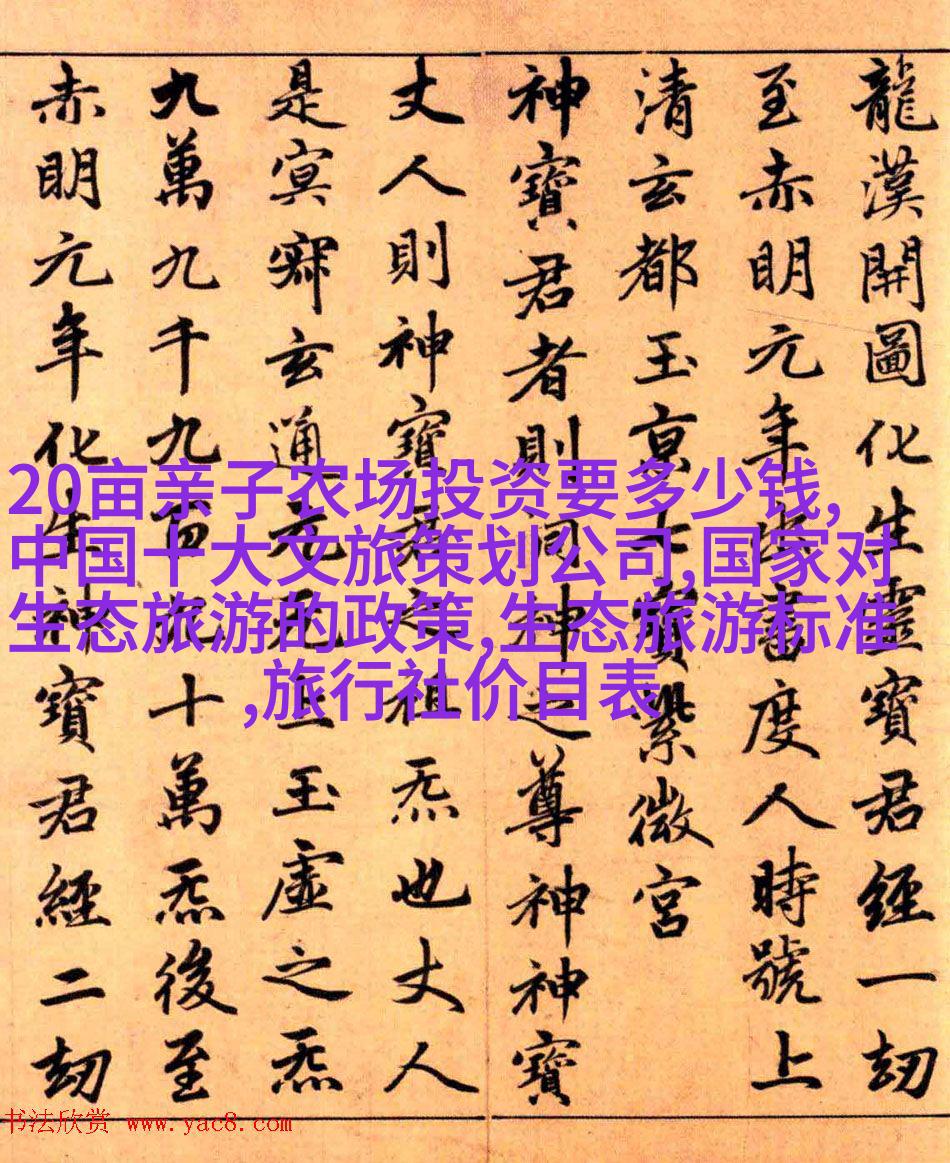 龍漢開圖化生靈寶君經一劫
至赤明元年出書度人時號上
清玄都玉京七寶紫微宮
神寶君者則洞神之尊神神寶
丈人則神寶君之祖炁也丈人
是冥寂玄通元无上玉虛之炁
九萬九千九百九十萬炁後至
赤明元年化生神寶君經二劫
20亩亲子农场投资要多少钱,
中国十大文旅策划公司,国家对
生态旅游的政策,生态旅游标准
,旅行社价目表
书法欣赏 www.yac8.com